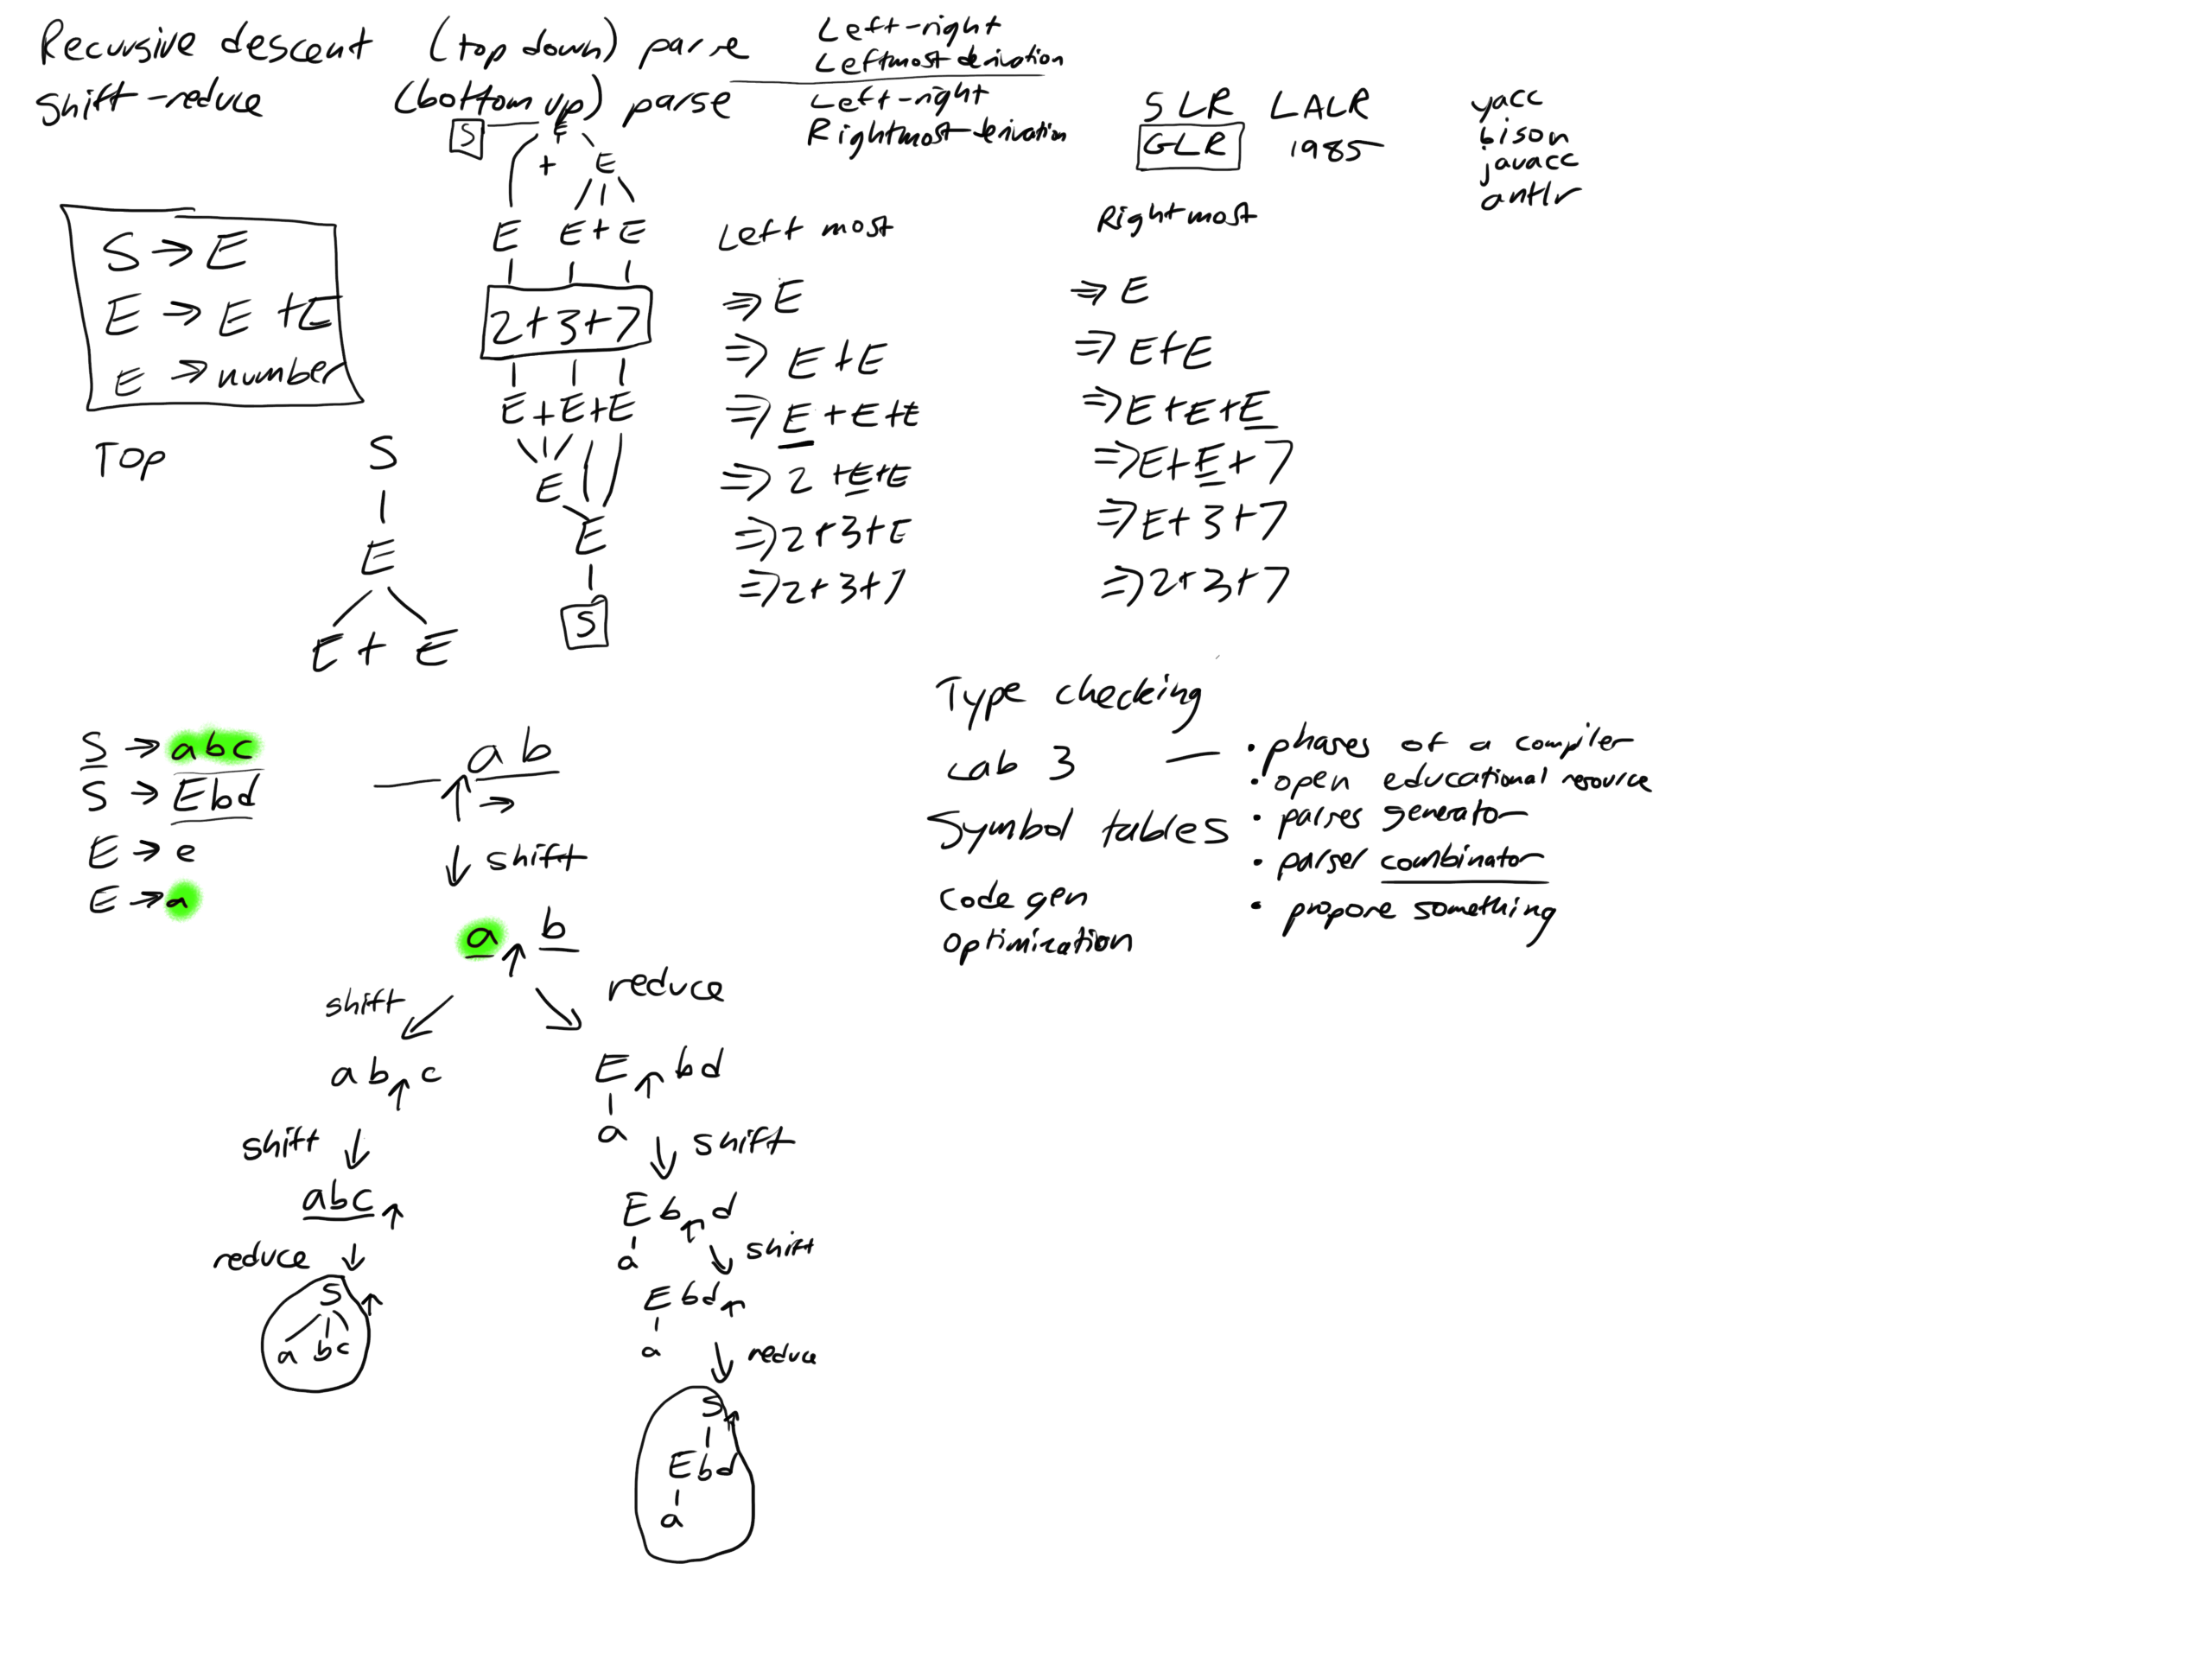 Recursive descent (top down) parse
Left-right
Leftmost derivation
Shift-reduce (bottom up) parse
Left-right
Rightmost derivation
SLR LALR
GLR 1985
yacc
bison
javacc
antlr
S → E
E → E + E
E → number
S E
+ E
E E + E
2 + 3 + 7
E + E + E
E
E
S
Top
S
E
E + E
Left most
⇒ E
⇒ E + E
⇒ E + E + E
⇒ 2 + E + E
⇒ 2 + 3 + E
⇒ 2 + 3 + 7
Rightmost
⇒ E
⇒ E + E
⇒ E + E + E
⇒ E + E + 7
⇒ E + 3 + 7
⇒ 2 + 3 + 7
S → abc
S → Ebd
E → e
E → a
↑ a b
→
↓ shift
a ↑ b
shift ↙
↘ reduce
a b ↑ c
shift ↓
abc ↑
reduce ↓
S ↑
a b c
E ↑ b d
a
↓ shift
E b ↑ d
a
↓ shift
E b d ↑
a
↓ reduce
S ↑
E b d
a
Type checking
Lab 3 —
Symbol tables
Code gen
Optimization
• phases of a compiler
• open educational resource
• parses generator
• parser combinator
• propose something